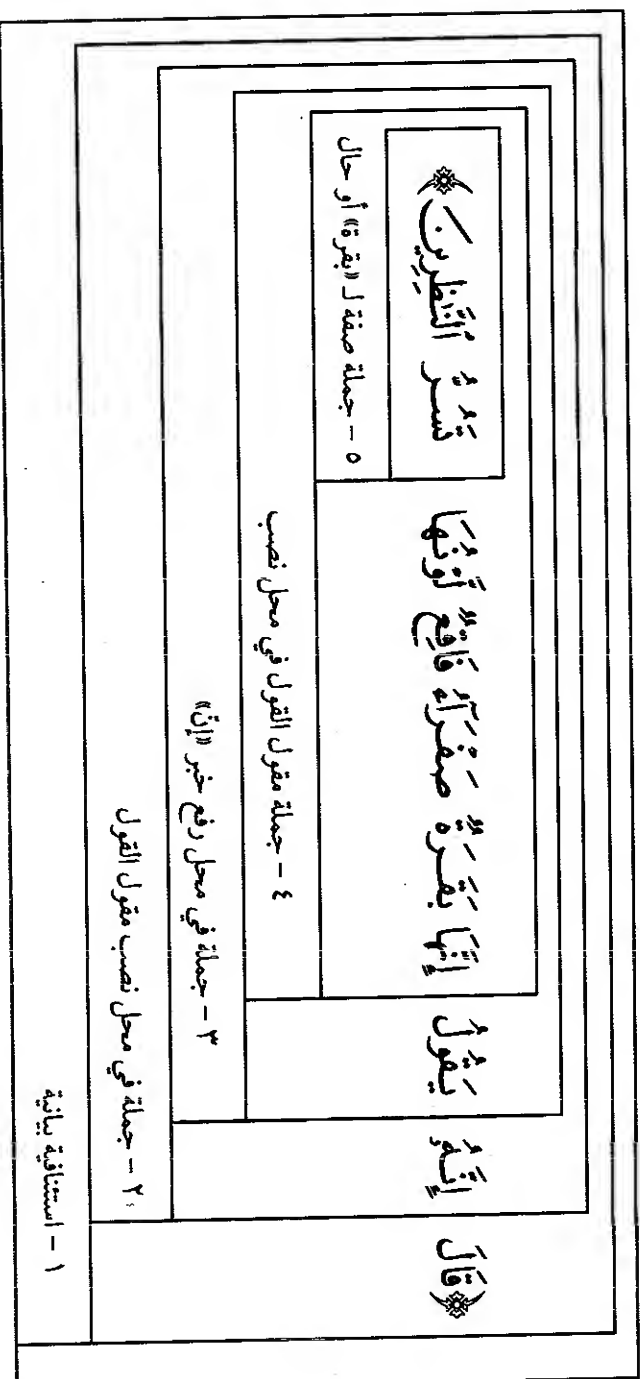 ﴿قَالَ إِنَّهُۥ يَقُولُ إِنَّهَا بَقَرَةٌ صَفْرَآءُ فَاقِعٌ لَّوْنُهَا تَسُرُّ ٱلنَّـٰظِرِينَ﴾
٥ – جملة صفة لـ «بقرة» أو حال
٤ – جملة مقول القول في محل نصب
٣ – جملة في محل رفع خبر «إنّ»
٢ – جملة في محل نصب مقول القول
١ – استئنافية بيانية